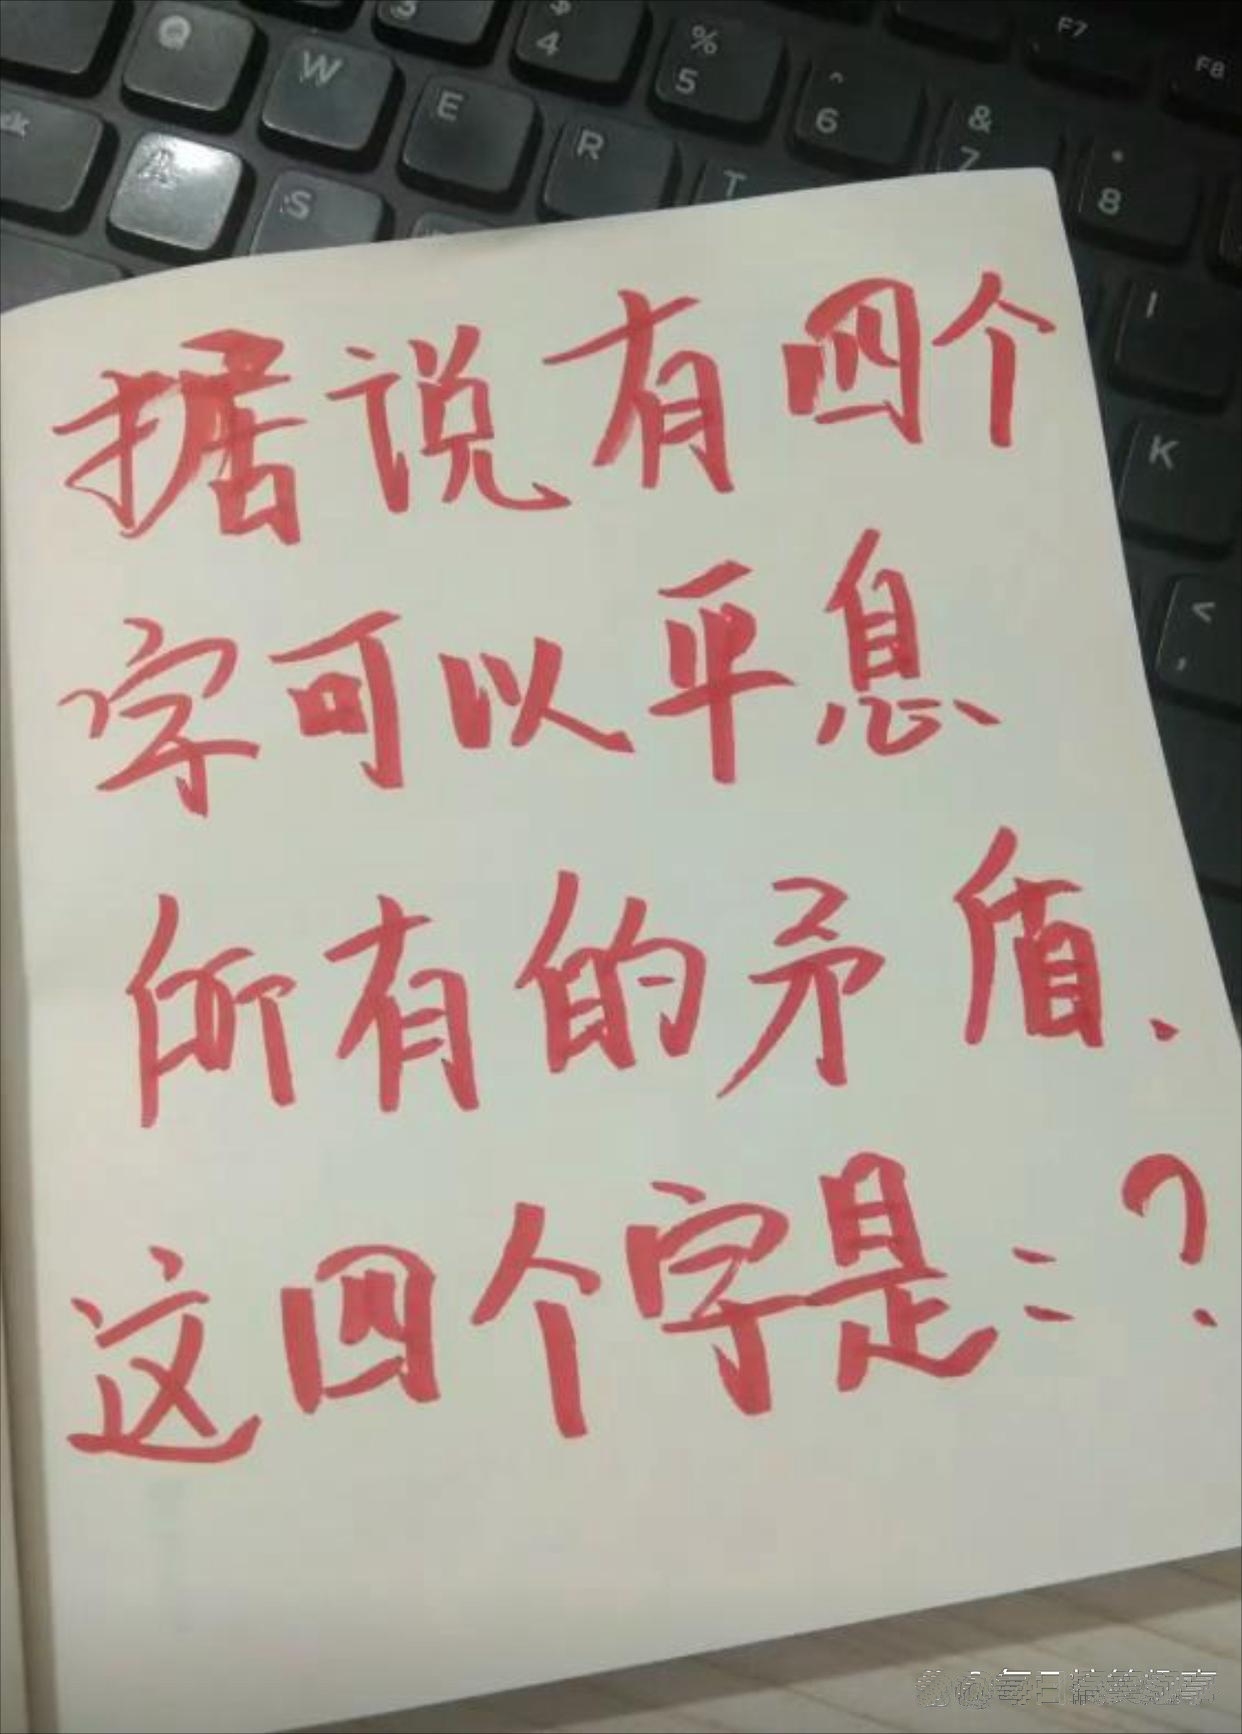 Q W 3 $ 4 % 5 ^ 6 & 7 * 8 F7 F8
A S E R T
I
K
< ,
据说有四个
字可以平息
所有的矛盾.
这四个字是:?